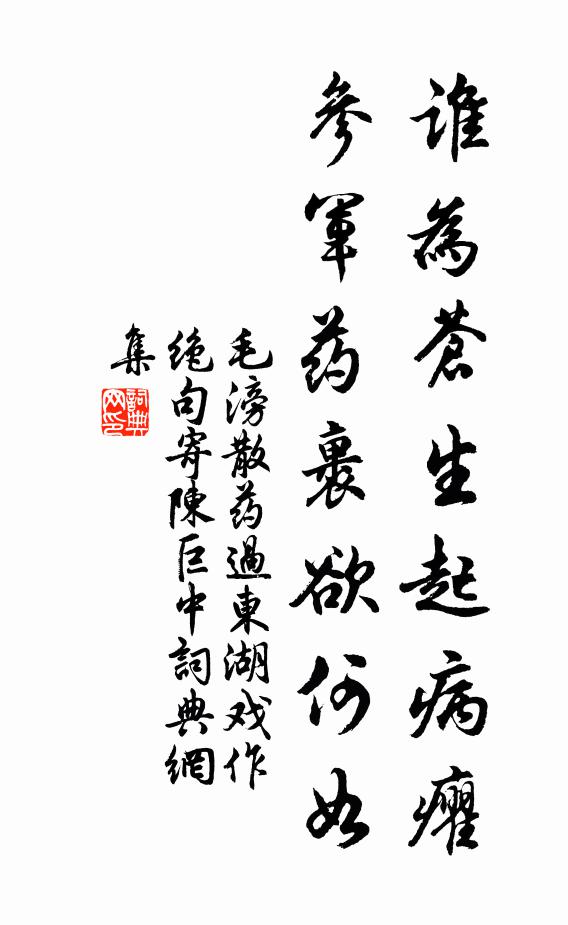 誰為蒼生起病癯
參軍药裹欲何如
毛滂散药過東湖戏作
绝句寄陳巨中詞典網
集
詞典
网印